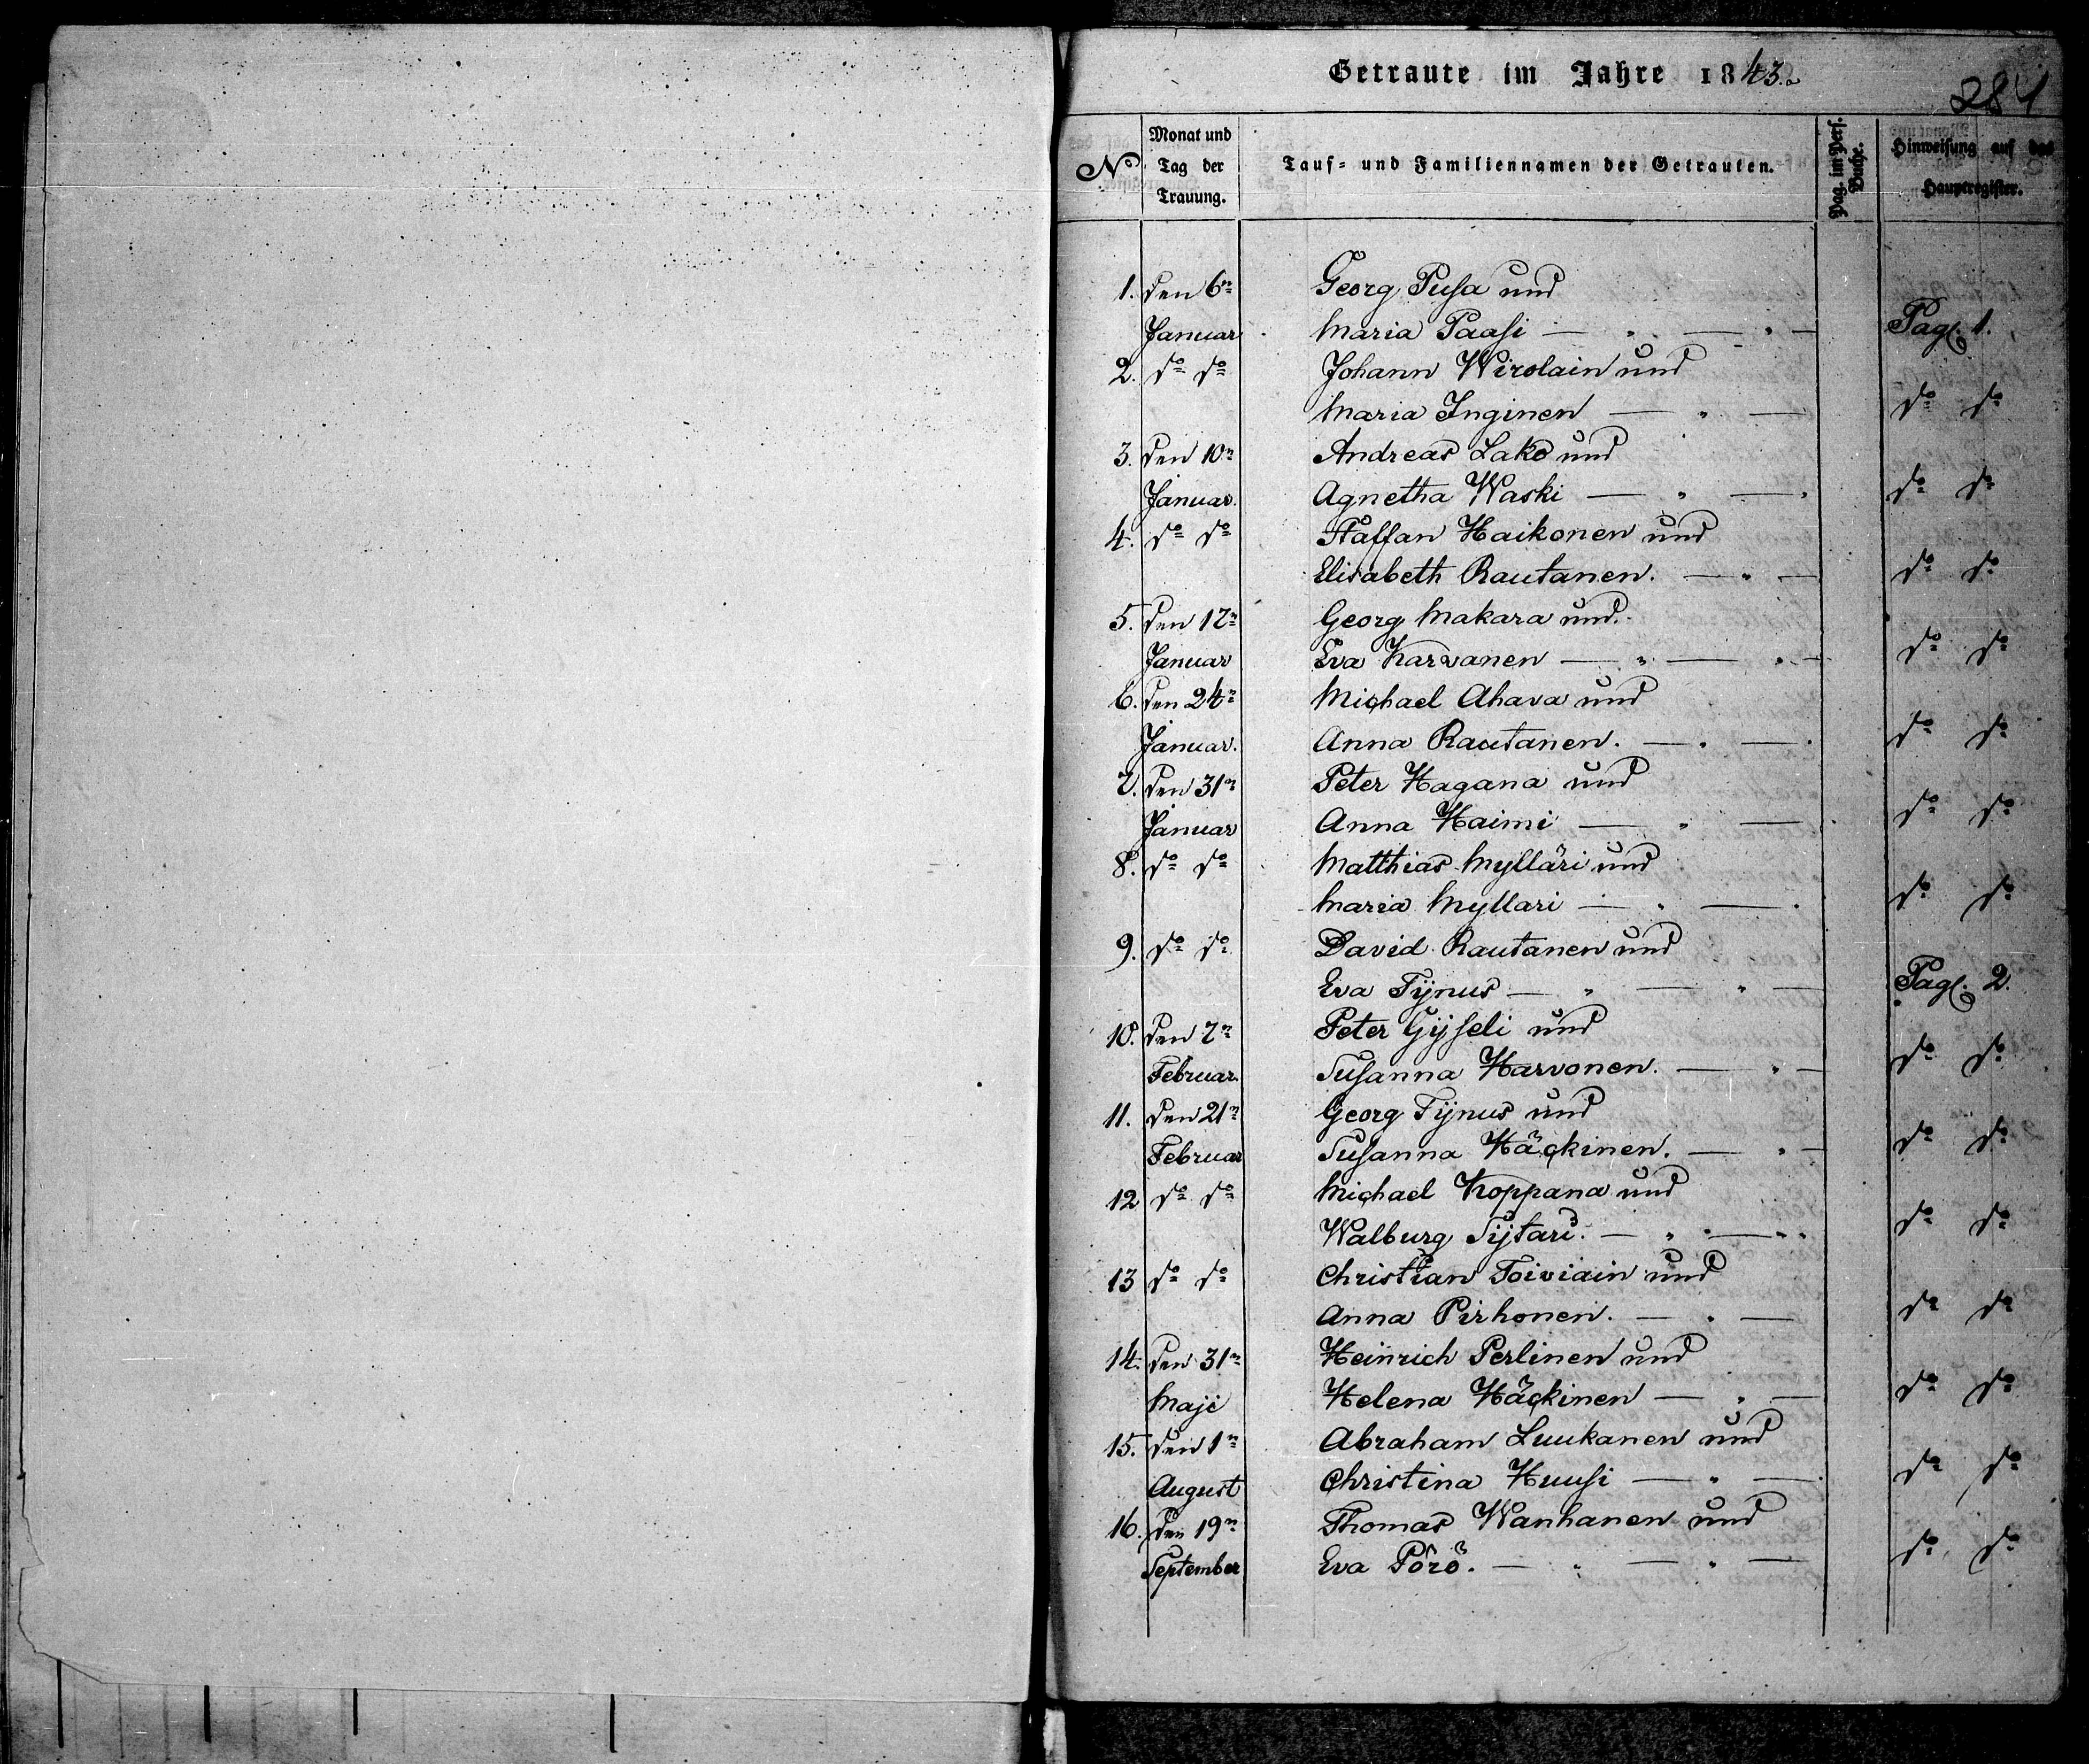 Getraute im Jahre 1843.
284
No
Monat und Tag der Trauung.
Tauf- und Familiennamen der Getrauten.
Pag. im Pers. Buche.
Hinweisung auf das Hauptregister.
1. den 6n Georg Pusa und
Januar Maria Paasi — " — " — Pag. 1.
2. do do Johann Wirolain und
Maria Inginen — " — do do
3. den 10n Andreas Lako und
Januar. Agnetha Waski — " — do do
4. do do Staffan Haikonen und
Elisabeth Rautanen. — " — do do
5. den 17n Georg Makara und
Januar Eva Karvanen — " — " — do do
6. den 24n Michael Ahava und
Januar. Anna Rautanen. — " — do do
7. den 31n Peter Hagana und
Januar Anna Haimi — " — do do
8. do do Matthias Mylläri und
Maria Myllari — " — do do
9. do do David Rautanen und
Eva Tÿnus — " — " — Pag. 2.
10. den 7n Peter Gÿseli und
Februar. Susanna Harvonen. — " — do do
11. den 21n Georg Tÿnus und
Februar Susanna Häckinen. — " — do do
12 do do Michael Koppana und
Walburg Sÿtäri. — " — " do do
13 do do Christian Toiviain und
Anna Pirhonen. — " — do do
14. den 31n Heinrich Perlinen und
Maji Helena Häckinen — " — do do
15. den 1n Abraham Luukanen und
August Christina Huusi — " — do do
16. den 19n Thomas Wanhanen und
September Eva Pörö. — " — " — do do